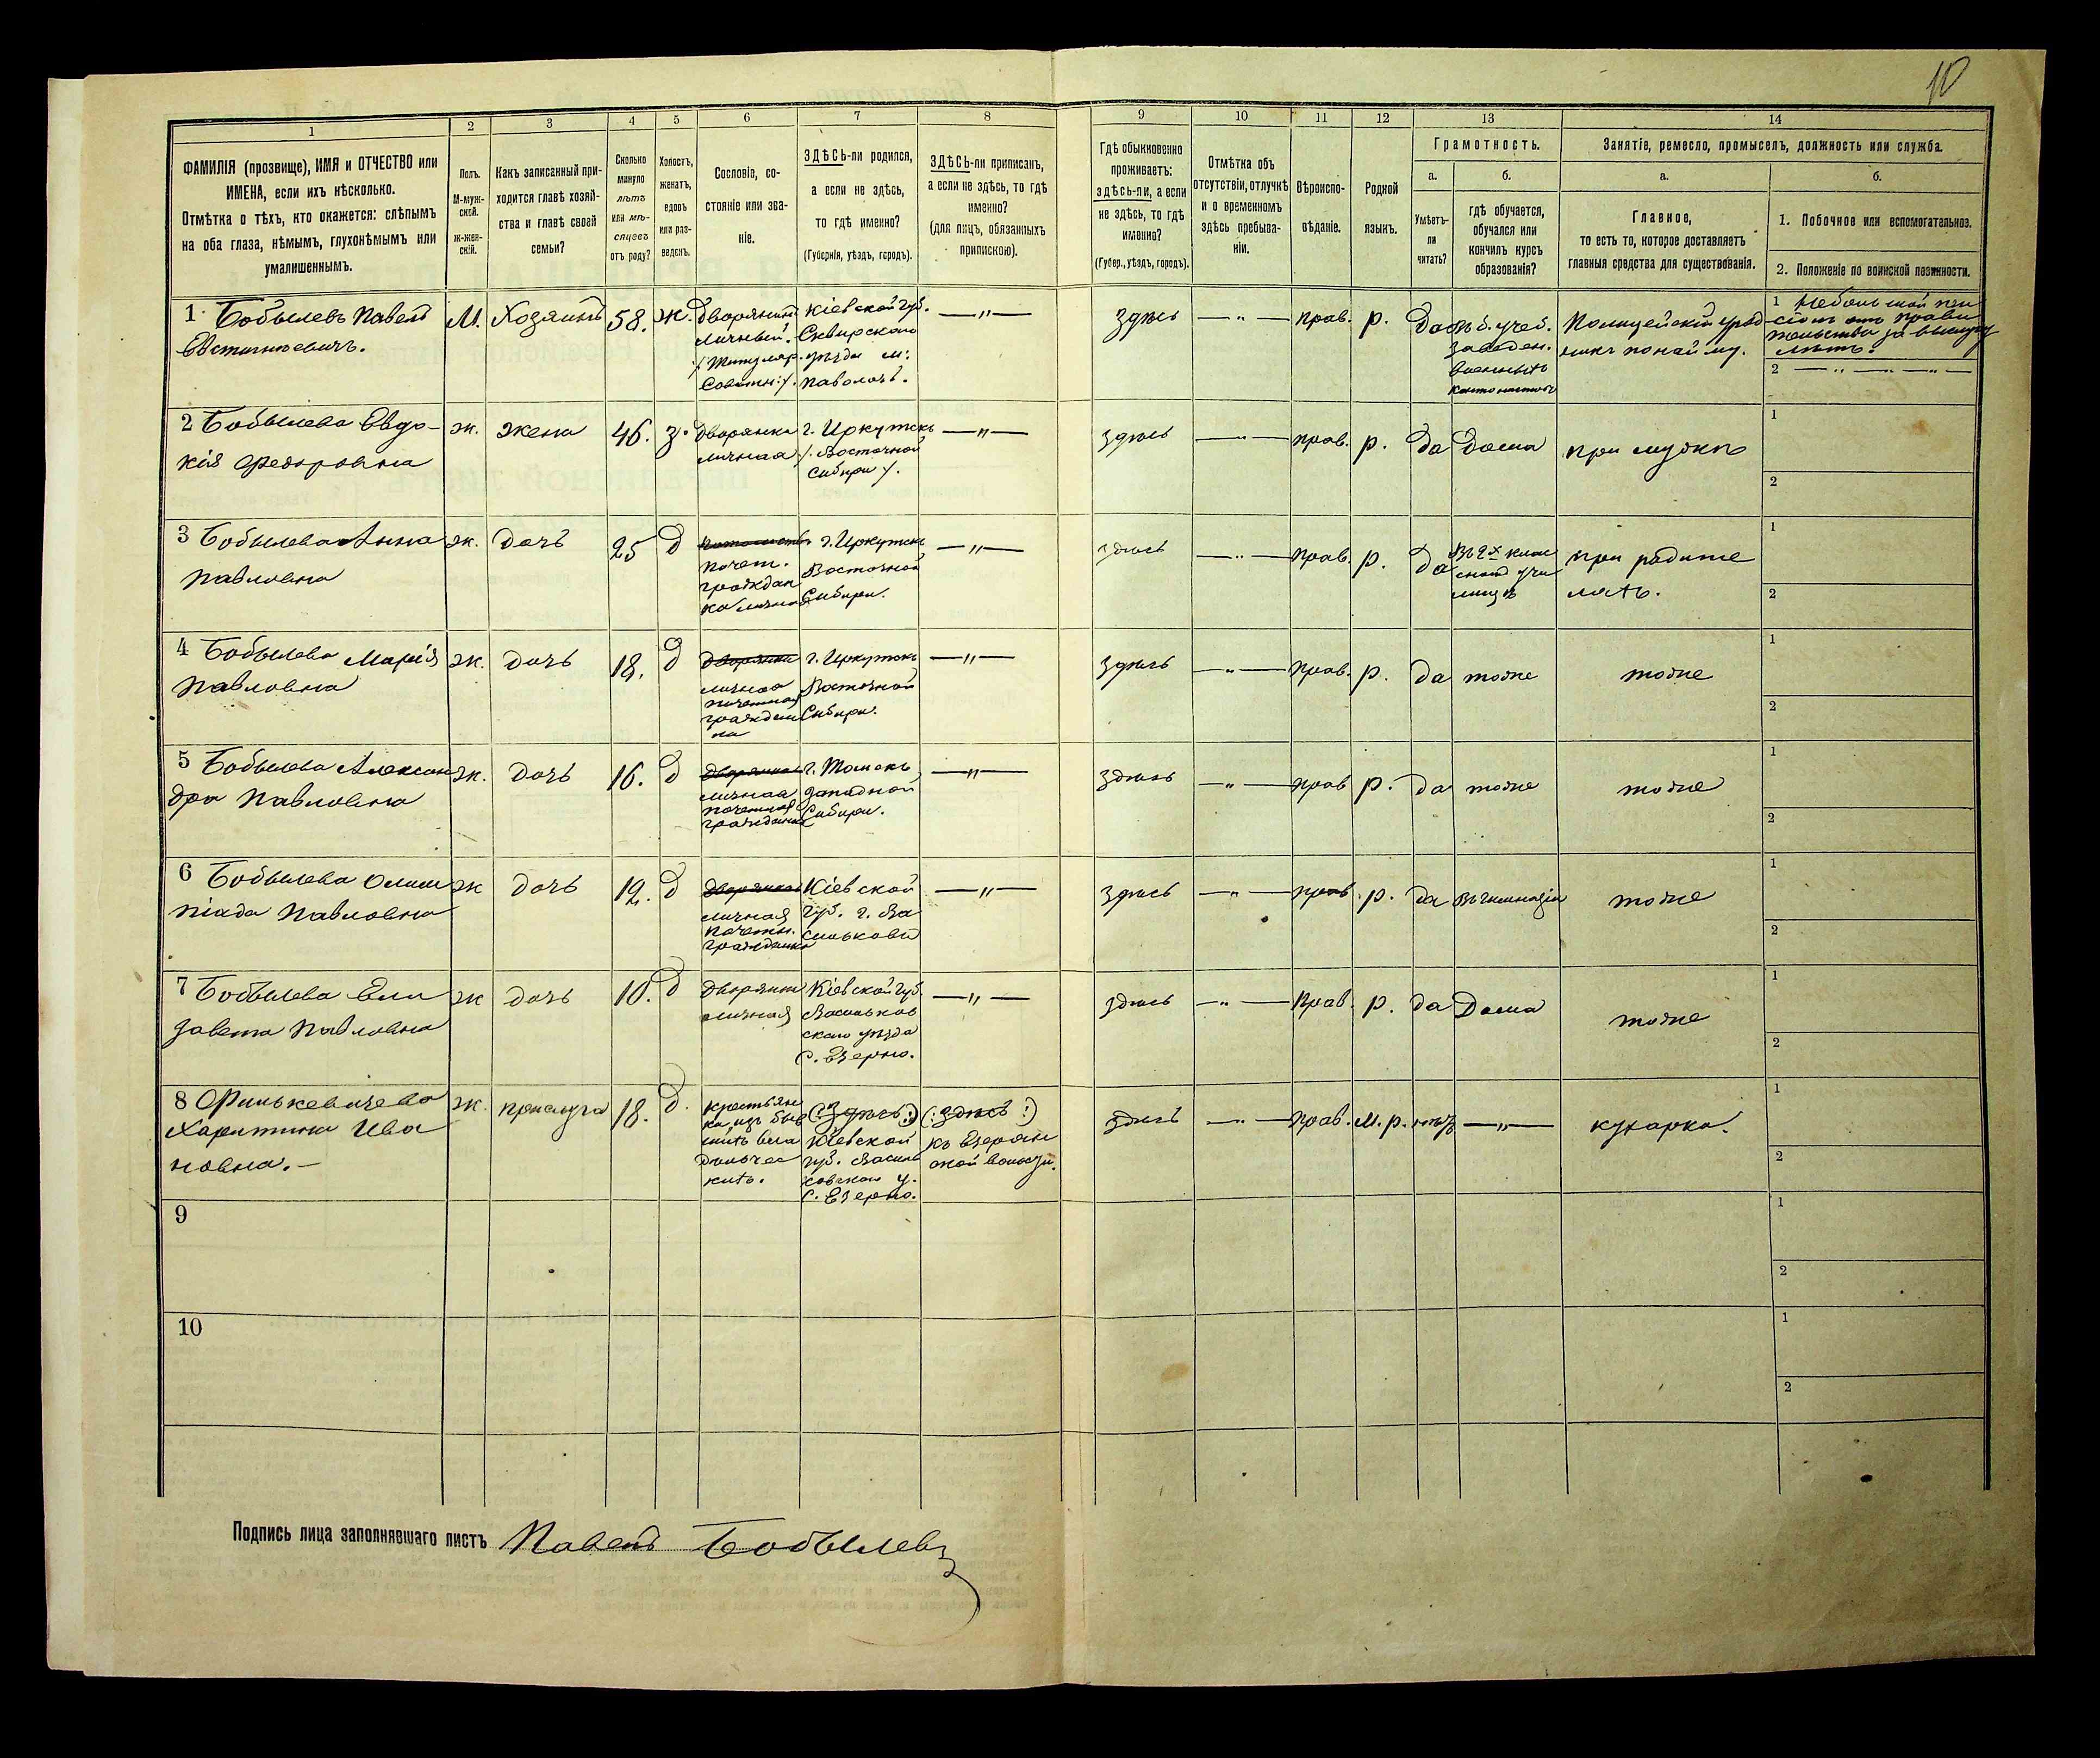 10
1 2 3 4 5 6 7 8 9 10 11 12 13 14
ФАМИЛІЯ (прозвище), ИМЯ и ОТЧЕСТВО или
ИМЕНА, если ихъ нѣсколько.
Отмѣтка о тѣхъ, кто окажется: слѣпымъ
на оба глаза, нѣмымъ, глухонѣмымъ или
умалишеннымъ.
Полъ.
М-муж-
ской.
ж-жен-
скій.
Какъ записанный при-
ходится главѣ хозяй-
ства и главѣ своей
семьи?
Сколько
минуло
лѣтъ
или мѣ-
сяцевъ
отъ роду?
Холостъ,
женатъ,
вдовъ
или раз-
веденъ.
Сословіе, со-
стояніе или зва-
ніе.
ЗДѢСЬ-ли родился,
а если не здѣсь,
то гдѣ именно?
(Губернія, уѣздъ, городъ).
ЗДѢСЬ-ли приписанъ,
а если не здѣсь, то гдѣ
именно?
(для лицъ, обязанныхъ
припискою).
Гдѣ обыкновенно
проживаетъ:
здѣсь-ли, а если
не здѣсь, то гдѣ
именно?
(Губер., уѣздъ, городъ).
Отмѣтка объ
отсутствіи, отлучкѣ
и о временномъ
здѣсь пребыва-
ніи.
Вѣроиспо-
вѣданіе.
Родной
языкъ.
Грамотность.
а.
Умѣетъ-
ли
читать?
б.
гдѣ обучается,
обучался или
кончилъ курсъ
образованія?
Занятіе, ремесло, промыселъ, должность или служба.
а.
Главное,
то есть то, которое доставляетъ
главныя средства для существованія.
б.
1. Побочное или вспомогательное.
2. Положеніе по воинской повинности.
1 Бобылевъ Павелъ
Евстигнѣевичъ.
М.
Хозяинъ
58.
ж.
Дворянинъ
личный.
/Титуляр.
Совѣтн:/.
Кіевской губ.
Сквирскаго
уѣзда м:
Паволочь.
— " —
здѣсь
— " —
прав.
р.
Да
въ б. учеб.
заведен.
военныхъ
кантонистовъ
Полицейскій уряд
никъ по найму.
1 Небольшой пен
сіонъ отъ прави
тельства за выслугу
лѣтъ.
2 — " — " —
2 Бобылева Евдо-
кія Федоровна
ж.
жена
46.
з.
Дворянка
личная
г. Иркутскъ
/. Восточной
Сибири /.
— " —
здѣсь
— " —
прав.
р.
Да
Дома
при мужѣ
1
2
3 Бобылева Анна
Павловна
ж.
дочь
25
д
почет.
граждан
ка личная
г. Иркутскъ
Восточной
Сибири.
— " —
здѣсь
— " —
прав.
р.
Да
Въ 2х клас
сномъ учи
лищѣ
при родите
ляхъ.
1
2
4 Бобылева Марія
Павловна
ж.
дочь
18.
д
Дворянка
личная
почетная
граждан
ка
г. Иркутскъ
Восточной
Сибири.
— " —
здѣсь
— " —
прав.
р.
Да
тоже
тоже
1
2
5 Бобылева Алексан
дра Павловна
ж.
дочь
16.
д
Дворянка
личная
почетная
гражданка
г. Томскъ
Западной
Сибири.
— " —
здѣсь
— " —
прав
р.
Да
тоже
тоже
1
2
6 Бобылева Олим
піада Павловна
ж
дочь
12.
д
Дворянка
личная
почетн.
гражданка
Кіевской
губ. г. Ва
сильковъ
— " —
здѣсь
— " —
прав.
р.
Да
въ гимназіи
тоже
1
2
7 Бобылева Ели
завета Павловна
ж
дочь
10.
д
Дворянк
личная
Кіевской губ.
Васильков
скаго уѣзда
С. Езерно.
— " —
здѣсь
— " —
прав.
р.
да
Дома
тоже
1
2
8 Финькевичева
Харитина Ива
новна. —
ж.
прислуга
18.
д.
крестьян
ка изъ быв
шихъ вла
дѣльчес
кихъ.
(:здѣсь:)
Кіевской
губ. Василь
ковскаго у.
С. Езерно.
(:здѣсь:)
къ Езерян
ской волости.
здѣсь
— " —
прав.
м. р.
нѣтъ
— " —
кухарка.
1
2
9
1
2
10
1
2
Подпись лица заполнявшаго листъ Павелъ Бобылевъ